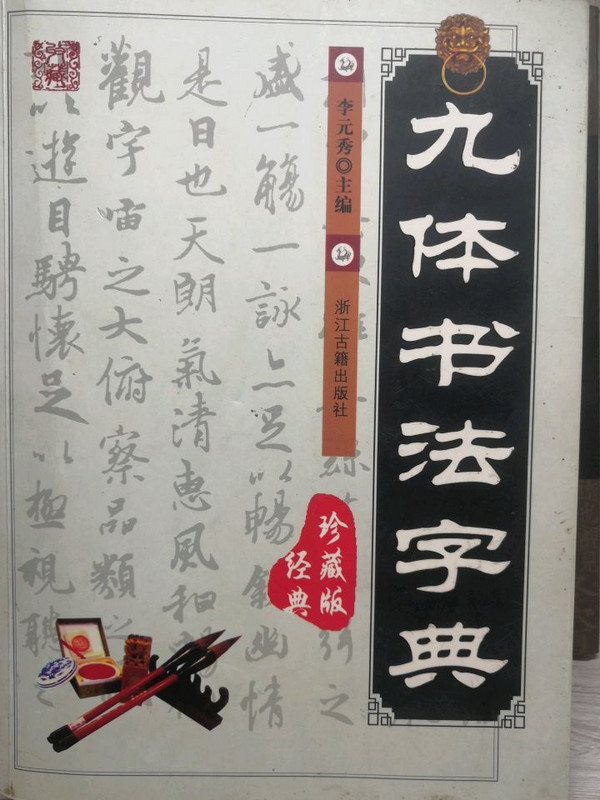 九体书法字典
李元秀◎主编
浙江古籍出版社
珍藏版
经典
盛一觴一詠亦足以暢敘幽情
是日也天朗氣清惠風和暢
觀宇宙之大俯察品類之
以遊目騁懷足以極視聽之
收藏